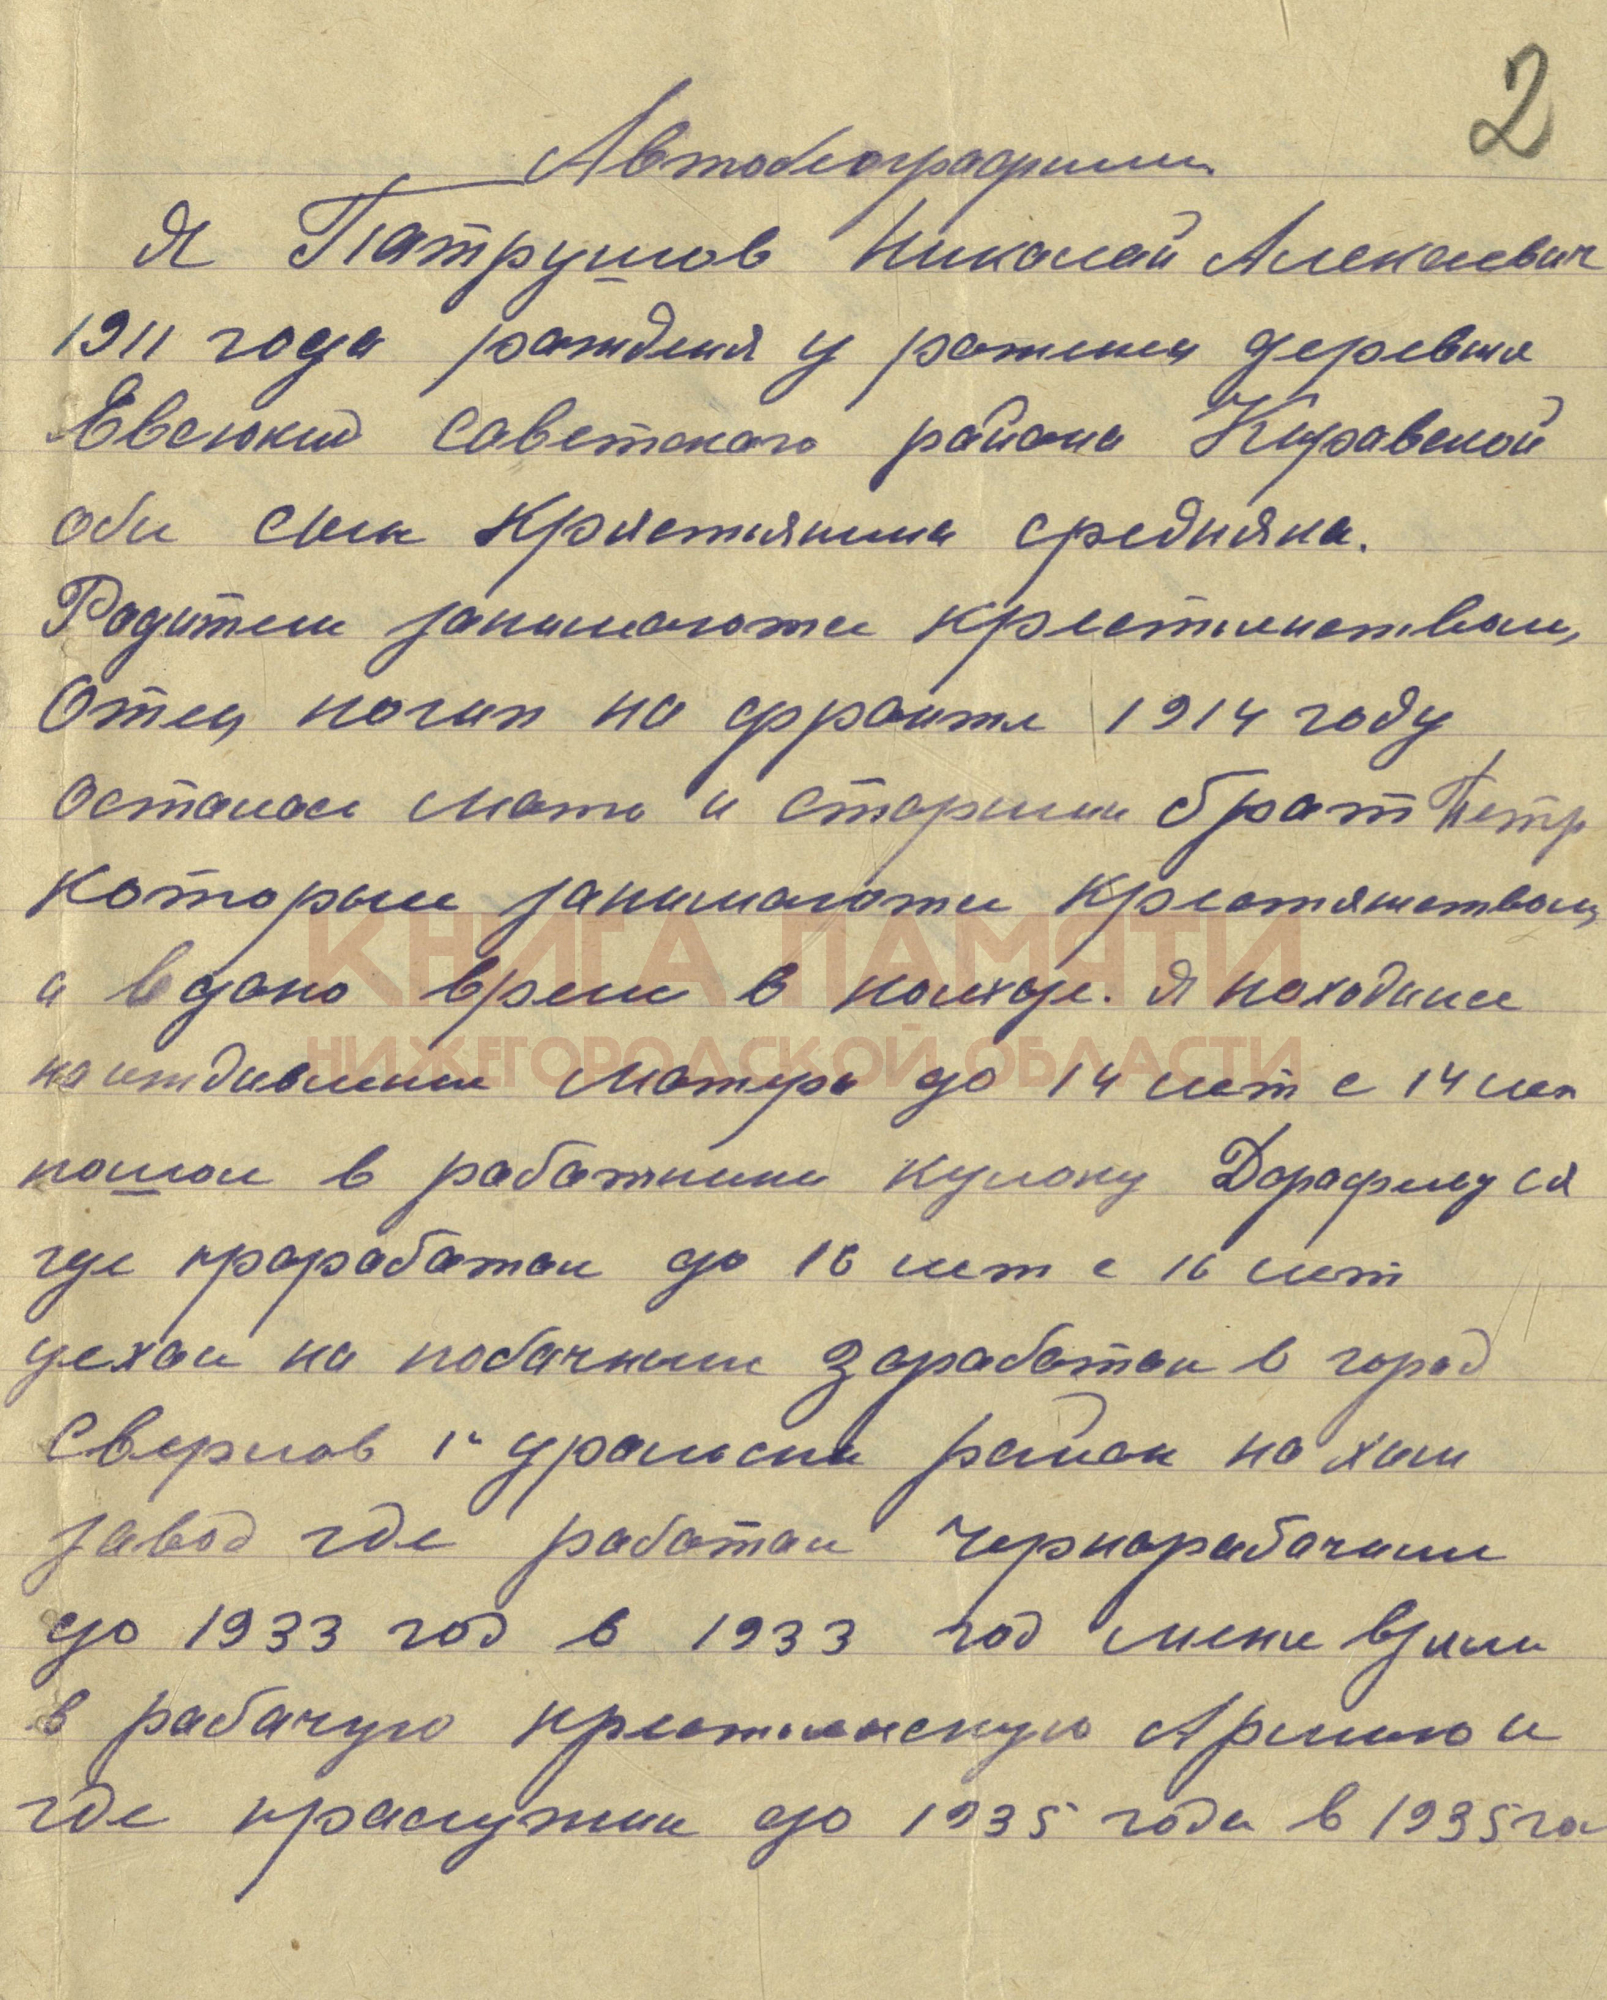 2
Автобиографии
Я Патрушов Николай Алексеевич
1911 года рождения уроженец деревня
Евсюкий Советского района Кировской
обл сын Крястьянина средняка.
Родители занимаются крестьянством,
Отец погип на фронте 1914 году
осталась мать и старший брат Петр
Которые занимаются крестянством
а в дано время в колхозе. Я находился
на иждивлении матери до 14 лет с 14 лет
пошол в работники кулаку
где проработал до 16 лет с 16 лет
уехал на побачные Заработки в город
Свердлов 1й уральски район на хим
завод где работал Чернорабочим
до 1933 год в 1933 год меня взяли
в рабачую крестьянскую Армию и
где праслужил до 1935 года в 1935 го
КНИГА ПАМЯТИ
НИЖЕГОРОДСКОЙ ОБЛАСТИ